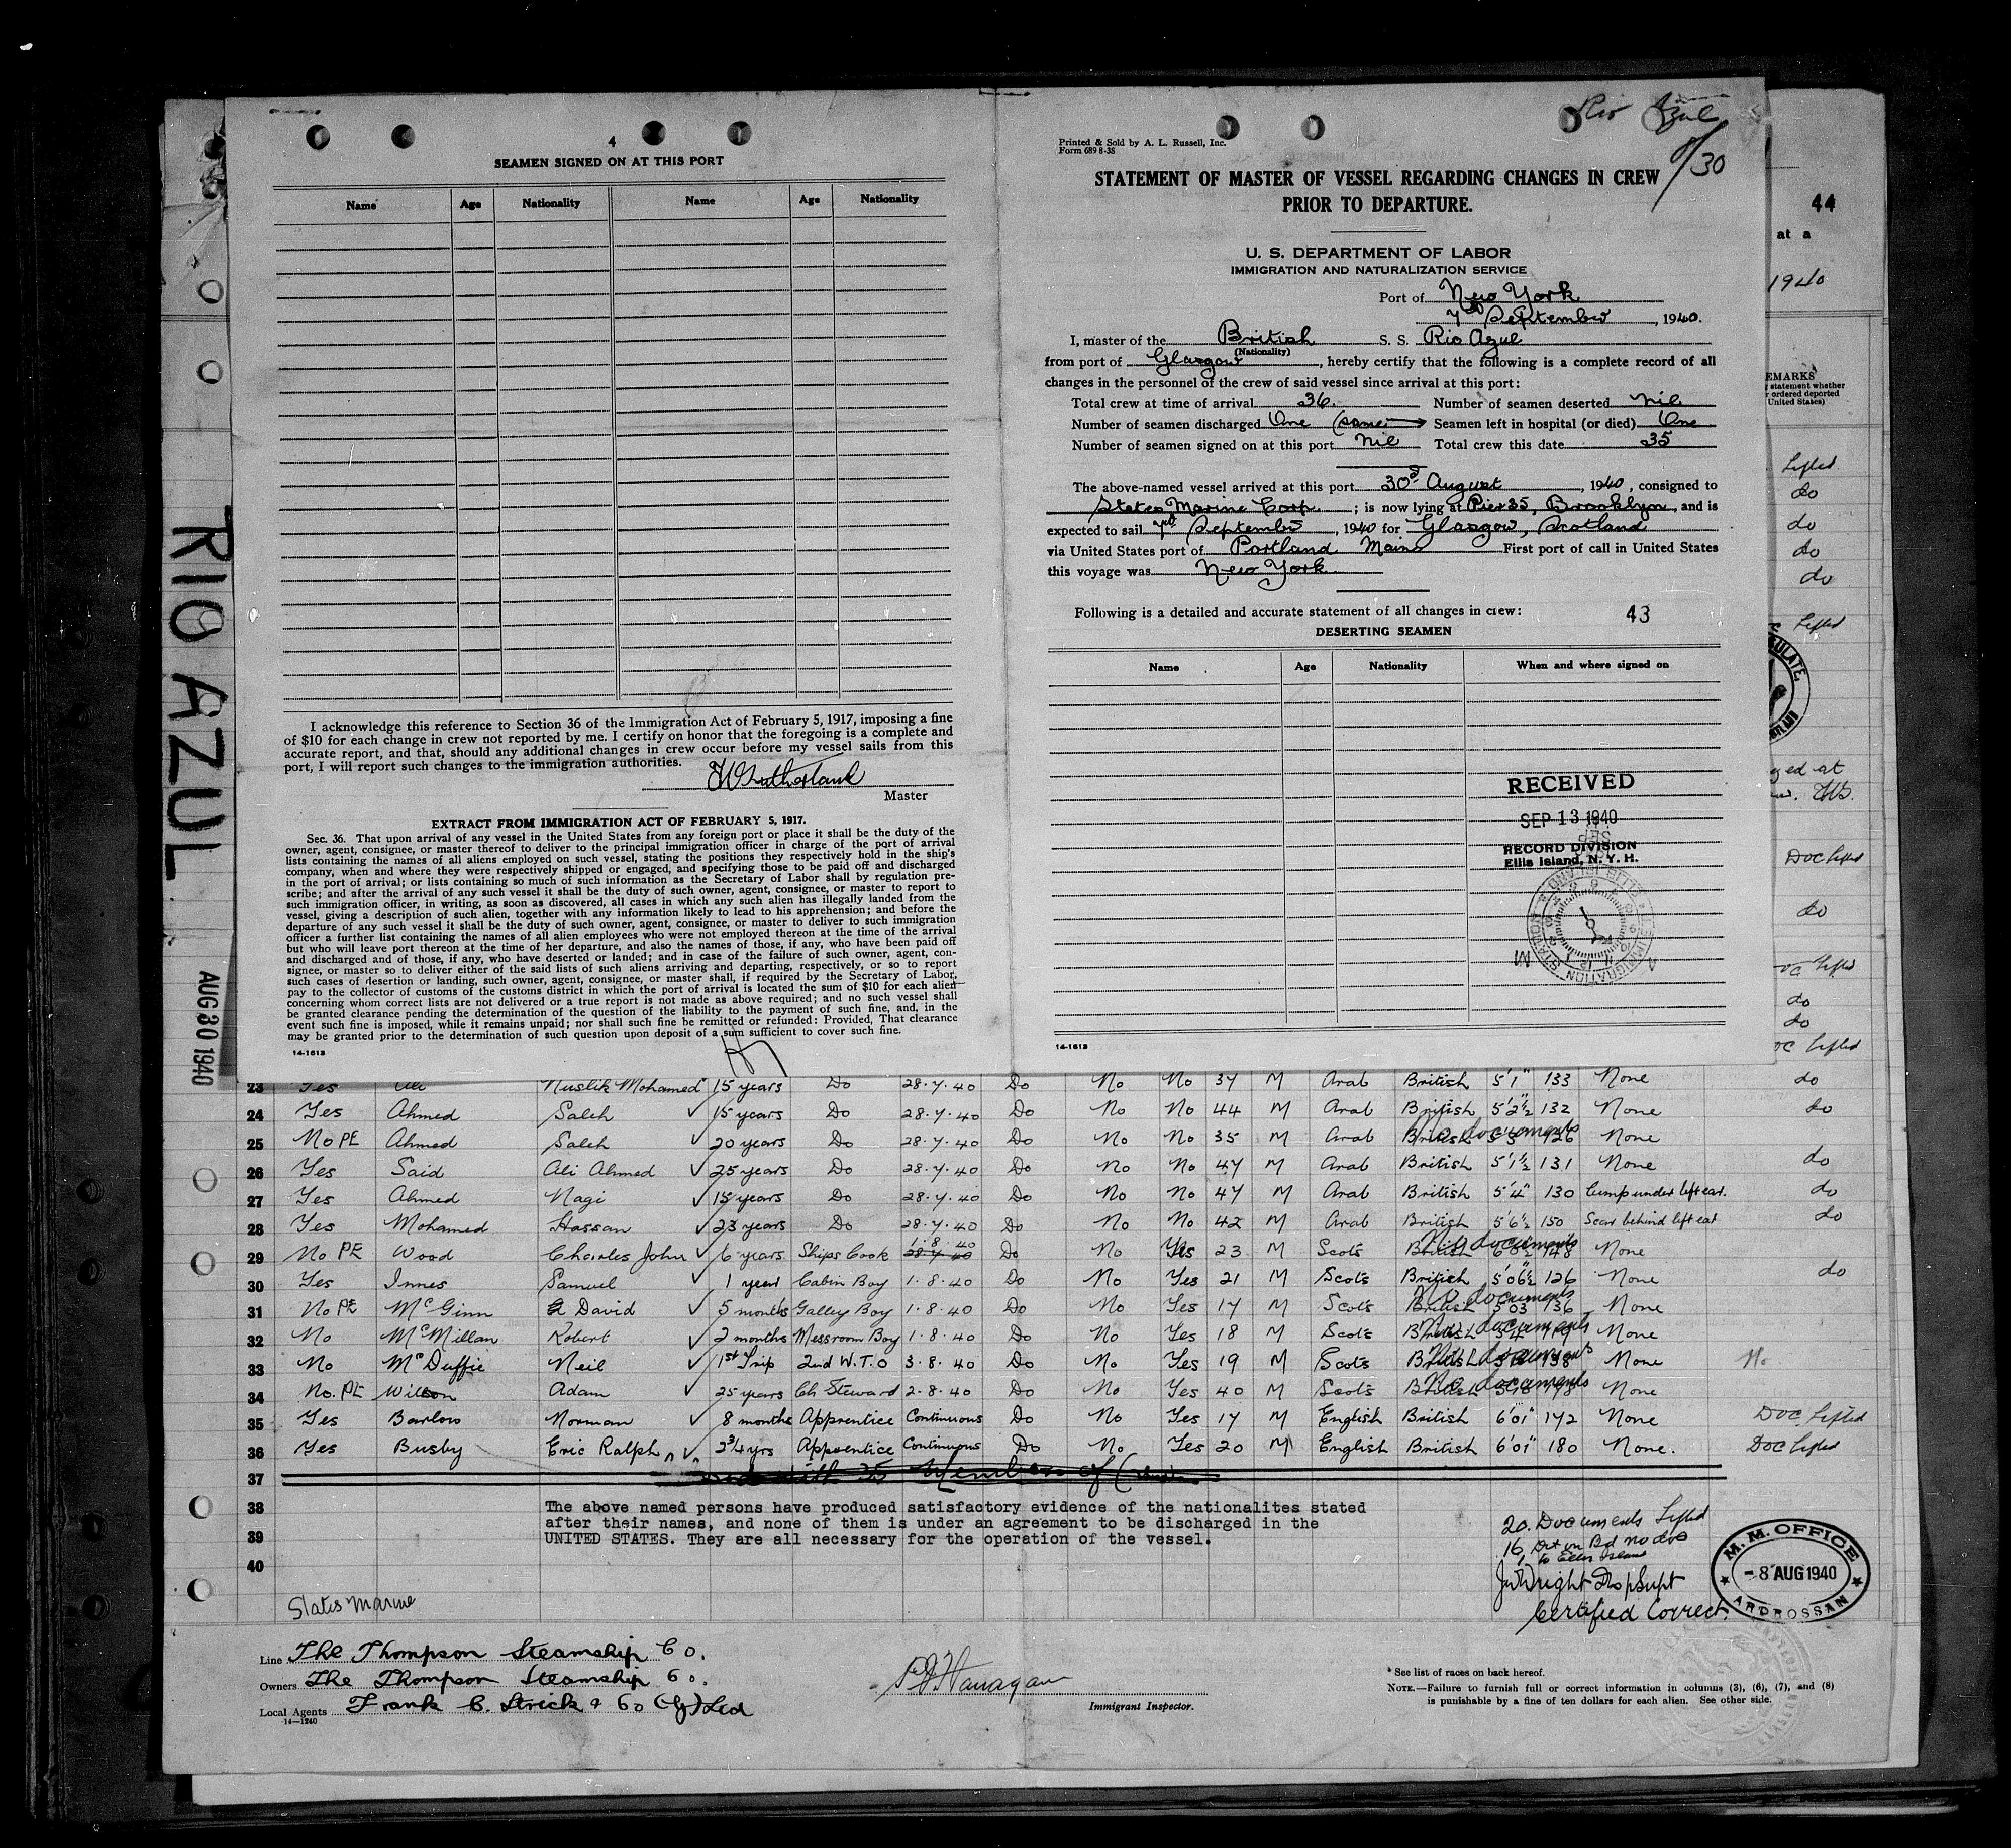 4
SEAMEN SIGNED ON AT THIS PORT
Name Age Nationality Name Age Nationality
I acknowledge this reference to Section 36 of the Immigration Act of February 5, 1917, imposing a fine
of $10 for each change in crew not reported by me. I certify on honor that the foregoing is a complete and
accurate report, and that, should any additional changes in crew occur before my vessel sails from this
port, I will report such changes to the immigration authorities.
Master
EXTRACT FROM IMMIGRATION ACT OF FEBRUARY 5, 1917.
Sec. 36. That upon arrival of any vessel in the United States from any foreign port or place it shall be the duty of the
owner, agent, consignee, or master thereof to deliver to the principal immigration officer in charge of the port of arrival
lists containing the names of all aliens employed on such vessel, stating the positions they respectively hold in the ship's
company, when and where they were respectively shipped or engaged, and specifying those to be paid off and discharged
in the port of arrival; or lists containing so much of such information as the Secretary of Labor shall by regulation pre-
scribe; and after the arrival of any such vessel it shall be the duty of such owner, agent, consignee, or master to report to
such immigration officer, in writing, as soon as discovered, all cases in which any such alien has illegally landed from the
vessel, giving a description of such alien, together with any information likely to lead to his apprehension; and before the
departure of any such vessel it shall be the duty of such owner, agent, consignee, or master to deliver to such immigration
officer a further list containing the names of all alien employees who were not employed thereon at the time of the arrival
but who will leave port thereon at the time of her departure, and also the names of those, if any, who have been paid off
and discharged and of those, if any, who have deserted or landed; and in case of the failure of such owner, agent, con-
signee, or master so to deliver either of the said lists of such aliens arriving and departing, respectively, or so to report
such cases of desertion or landing, such owner, agent, consignee, or master shall, if required by the Secretary of Labor,
pay to the collector of customs of the customs district in which the port of arrival is located the sum of $10 for each alien
concerning whom correct lists are not delivered or a true report is not made as above required; and no such vessel shall
be granted clearance pending the determination of the question of the liability to the payment of such fine, and, in the
event such fine is imposed, while it remains unpaid; nor shall such fine be remitted or refunded: Provided, That clearance
may be granted prior to the determination of such question upon deposit of a sum sufficient to cover such fine.
14-1613
Rio Azul
8/30
Printed & Sold by A. L. Russell, Inc.
Form 689 8-38
STATEMENT OF MASTER OF VESSEL REGARDING CHANGES IN CREW
PRIOR TO DEPARTURE.
U. S. DEPARTMENT OF LABOR
IMMIGRATION AND NATURALIZATION SERVICE
Port of New York
7th September, 1940.
I, master of the British S. S. Rio Azul
(Nationality)
from port of Glasgow, hereby certify that the following is a complete record of all
changes in the personnel of the crew of said vessel since arrival at this port:
Total crew at time of arrival 36. Number of seamen deserted nil
Number of seamen discharged One (same Seamen left in hospital (or died) One
Number of seamen signed on at this port nil Total crew this date 35
The above-named vessel arrived at this port 30th August, 1940, consigned to
States Marine Corp. ; is now lying at Pier 35, Brooklyn, and is
expected to sail 7th September, 1940 for Glasgow, Scotland
via United States port of Portland Maine First port of call in United States
this voyage was New York.
Following is a detailed and accurate statement of all changes in crew: 43
DESERTING SEAMEN
Name Age Nationality When and where signed on
RECEIVED
SEP 13 1940
RECORD DIVISION
Ellis Island, N. Y. H.
14-1613
44
at a
1940
EMARKS
statement whether
r ordered deported
United States)
Lifted
do
do
do
do
Lifted
ged at
Doc Lifted
do
oc Lifted
do
do
oc Lifted
RIO AZUL
AUG 30 1940
23 Yes Ali Muslik Mohamed 15 years Do 28.7.40 Do No No 37 M Arab British 5'1" 133 None do
24 Yes Ahmed Saleh ✓ 15 years Do 28.7.40 Do No No 44 M Arab British 5'2½" 132 None do
25 No PE Ahmed Saleh ✓ 20 years Do 28.7.40 Do No No 35 M Arab British No documents 126 None
26 Yes Said Ali Ahmed ✓ 25 years Do 28.7.40 Do No No 47 M Arab British 5'1½ 131 None do
27 Yes Ahmed Nagi ✓ 15 years Do 28.7.40 Do No No 47 M Arab British 5'4" 130 Lump under left ear. do
28 Yes Mohamed Hassan ✓ 23 years Do 28.7.40 Do No No 42 M Arab British 5'6½ 150 Scar behind left ear do
29 No PE Wood Charles John ✓ 6 years Ships Cook 1.8.40 28.7.40 Do No Yes 23 M Scots British No documents 148 None
30 Yes Innes Samuel ✓ 1 year Cabin Boy 1.8.40 Do No Yes 21 M Scots British 5'06½ 126 None do
31 No PE McGinn David ✓ 5 months Galley Boy 1.8.40 Do No Yes 17 M Scots British No documents 5'03 136 None
32 No McMillan Robert ✓ 2 months Messroom Boy 1.8.40 Do No Yes 18 M Scots British No documents None
33 No McDuffie Neil ✓ 1st Trip 2nd W.T.O 3.8.40 Do No Yes 19 M Scots British No documents 138 None No
34 No. PE Wilson Adam ✓ 25 years Ch Steward 2.8.40 Do No Yes 40 M Scots British No documents None
35 Yes Barlow Norman ✓ 8 months Apprentice Continuous Do No Yes 17 M English British 6'01" 172 None DOC Lifted
36 Yes Busby Eric Ralph ✓ 2¾ yrs Apprentice Continuous Do No Yes 20 M English British 6'01" 180 None. DOC Lifted
37 35 Members of
38 The above named persons have produced satisfactory evidence of the nationalites stated
39 after their names, and none of them is under an agreement to be discharged in the
UNITED STATES. They are all necessary for the operation of the vessel.
40
20. Documents Lifted
16
1 to Ellis Island
Certified Correct
M. M. OFFICE
-8 AUG 1940
ARDROSSAN
States Marine
Line The Thompson Steamship Co.
Owners The Thompson Steamship Co.
Local Agents Frank C. Strick & Co (Gy) Ltd
14-1240
Immigrant Inspector.
* See list of races on back hereof.
NOTE.—Failure to furnish full or correct information in columns (3), (6), (7), and (8)
is punishable by a fine of ten dollars for each alien. See other side.